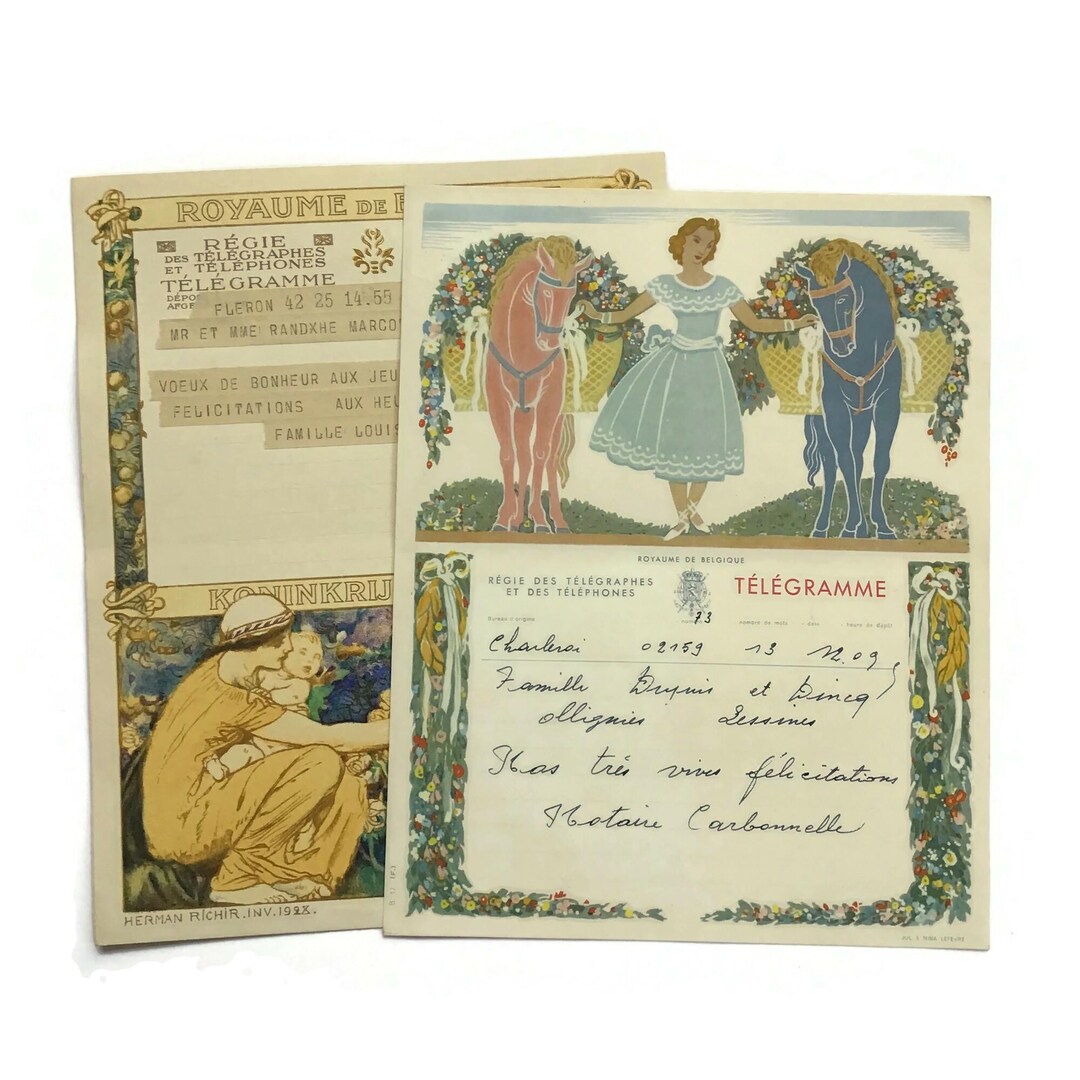 ROYAUME DE B
RÉGIE
DES TÉLÉGRAPHES
ET TÉLÉPHONES
TÉLÉGRAMME
DÉPO
FLERON 42 25 14.55
MR ET MME RANDXHE MARCO
VOEUX DE BONHEUR AUX JEU
FELICITATIONS AUX HEU
FAMILLE LOUIS
KONINKRIJ
HERMAN RICHIR.INV.1928.
ROYAUME DE BELGIQUE
RÉGIE DES TÉLÉGRAPHES
ET DES TÉLÉPHONES
TÉLÉGRAMME
73
Bureau d'origine nombre de mots date heure de dépôt
Charleroi 02159 13 12.09
Famille Dupuis et Dincq
Ollignies Lessines
Nos très vives félicitations
Notaire Carbonnelle